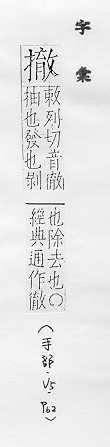 字彙
撤
敕列切音徹
抽也發也剝
也除去也○
經典通作徹
(手部·V5·P62)